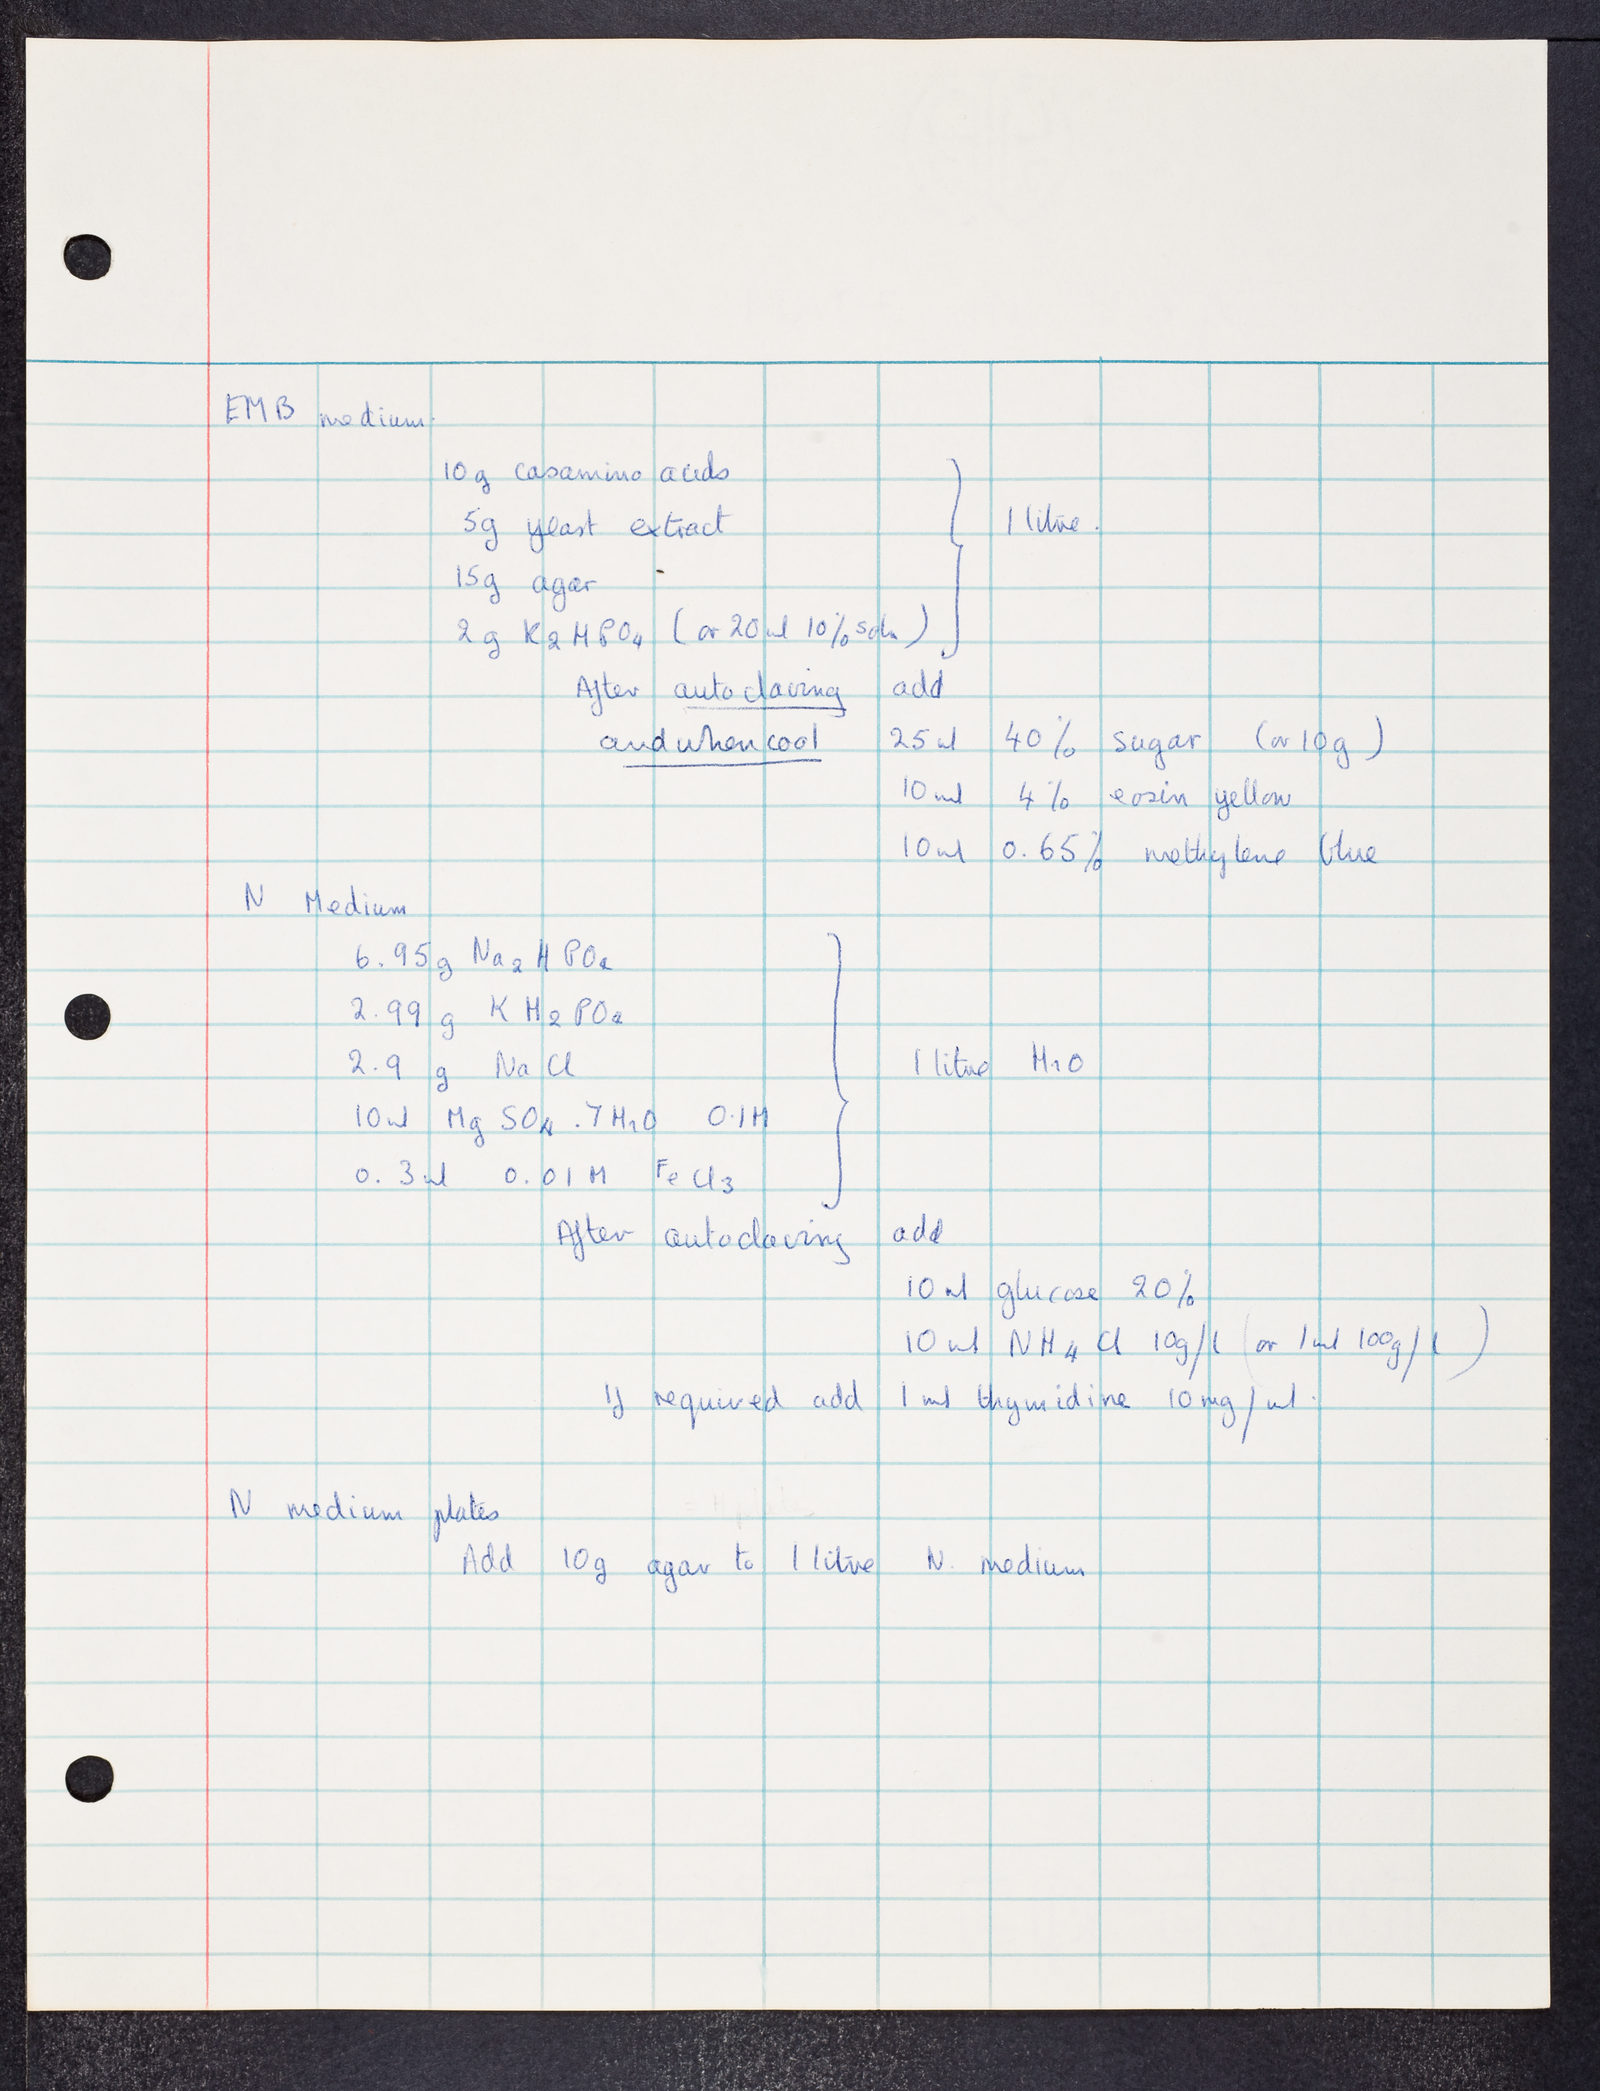 EMB medium.
10g casamino acids
5g yeast extract
1 litre.
15g agar
2g K2HPO4 (or 20ml 10% soln)
After autoclaving add
and when cool 25ml 40% sugar (or 10g)
10ml 4% eosin yellow
10ml 0.65% methylene blue
N Medium
6.95g Na2HPO4
2.99g KH2PO4
2.9g NaCl
1 litre H2O
10ml MgSO4.7H2O 0.1M
0.3ml 0.01M FeCl3
After autoclaving add
10ml glucose 20%
10ml NH4Cl 10g/l (or 1ml 100g/l)
If required add 1ml thymidine 10mg/ml.
N medium plates
Add 10g agar to 1 litre N. medium